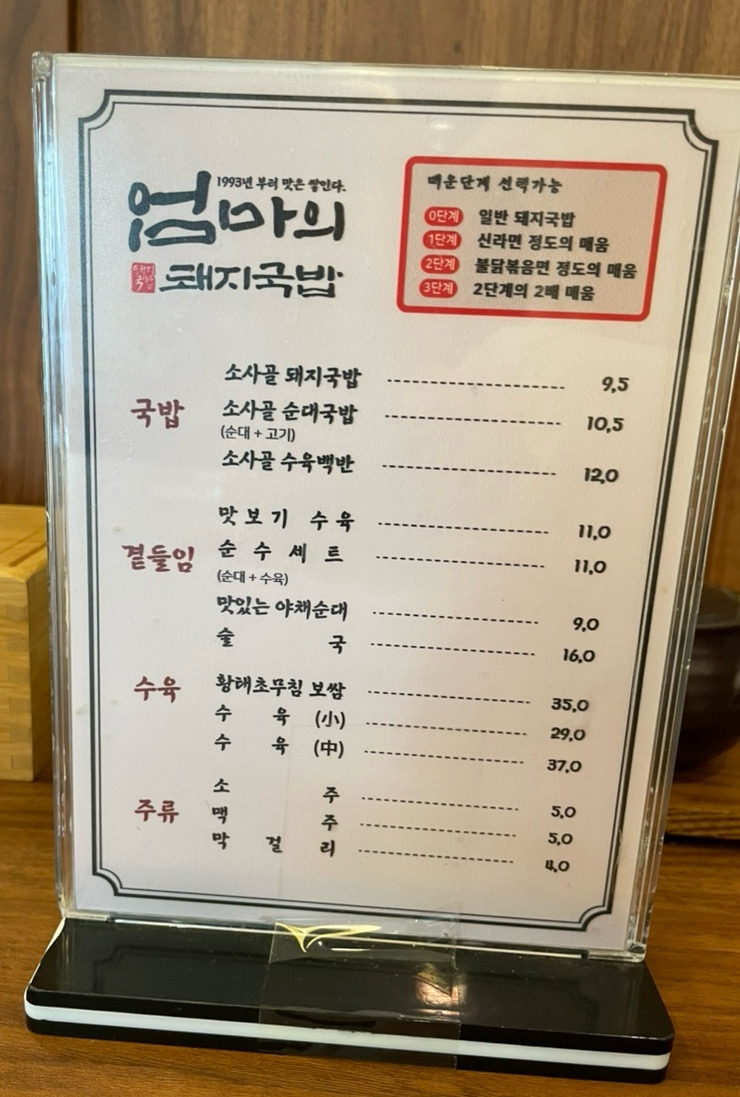 1993년 부터 맛은 쌓인다.
엄마의
돼지국밥
매운단계 선택가능
0단계 일반 돼지국밥
1단계 신라면 정도의 매움
2단계 불닭볶음면 정도의 매움
3단계 2단계의 2배 매움
국밥
소사골 돼지국밥 9,5
소사골 순대국밥 10,5
(순대 + 고기)
소사골 수육백반 12,0
곁들임
맛보기 수육 11,0
순수세트 11,0
(순대 + 수육)
맛있는 야채순대 9,0
술국 16,0
수육
황태초무침 보쌈 35,0
수육 (小) 29,0
수육 (中) 37,0
주류
소주 5,0
맥주 5,0
막걸리 4,0